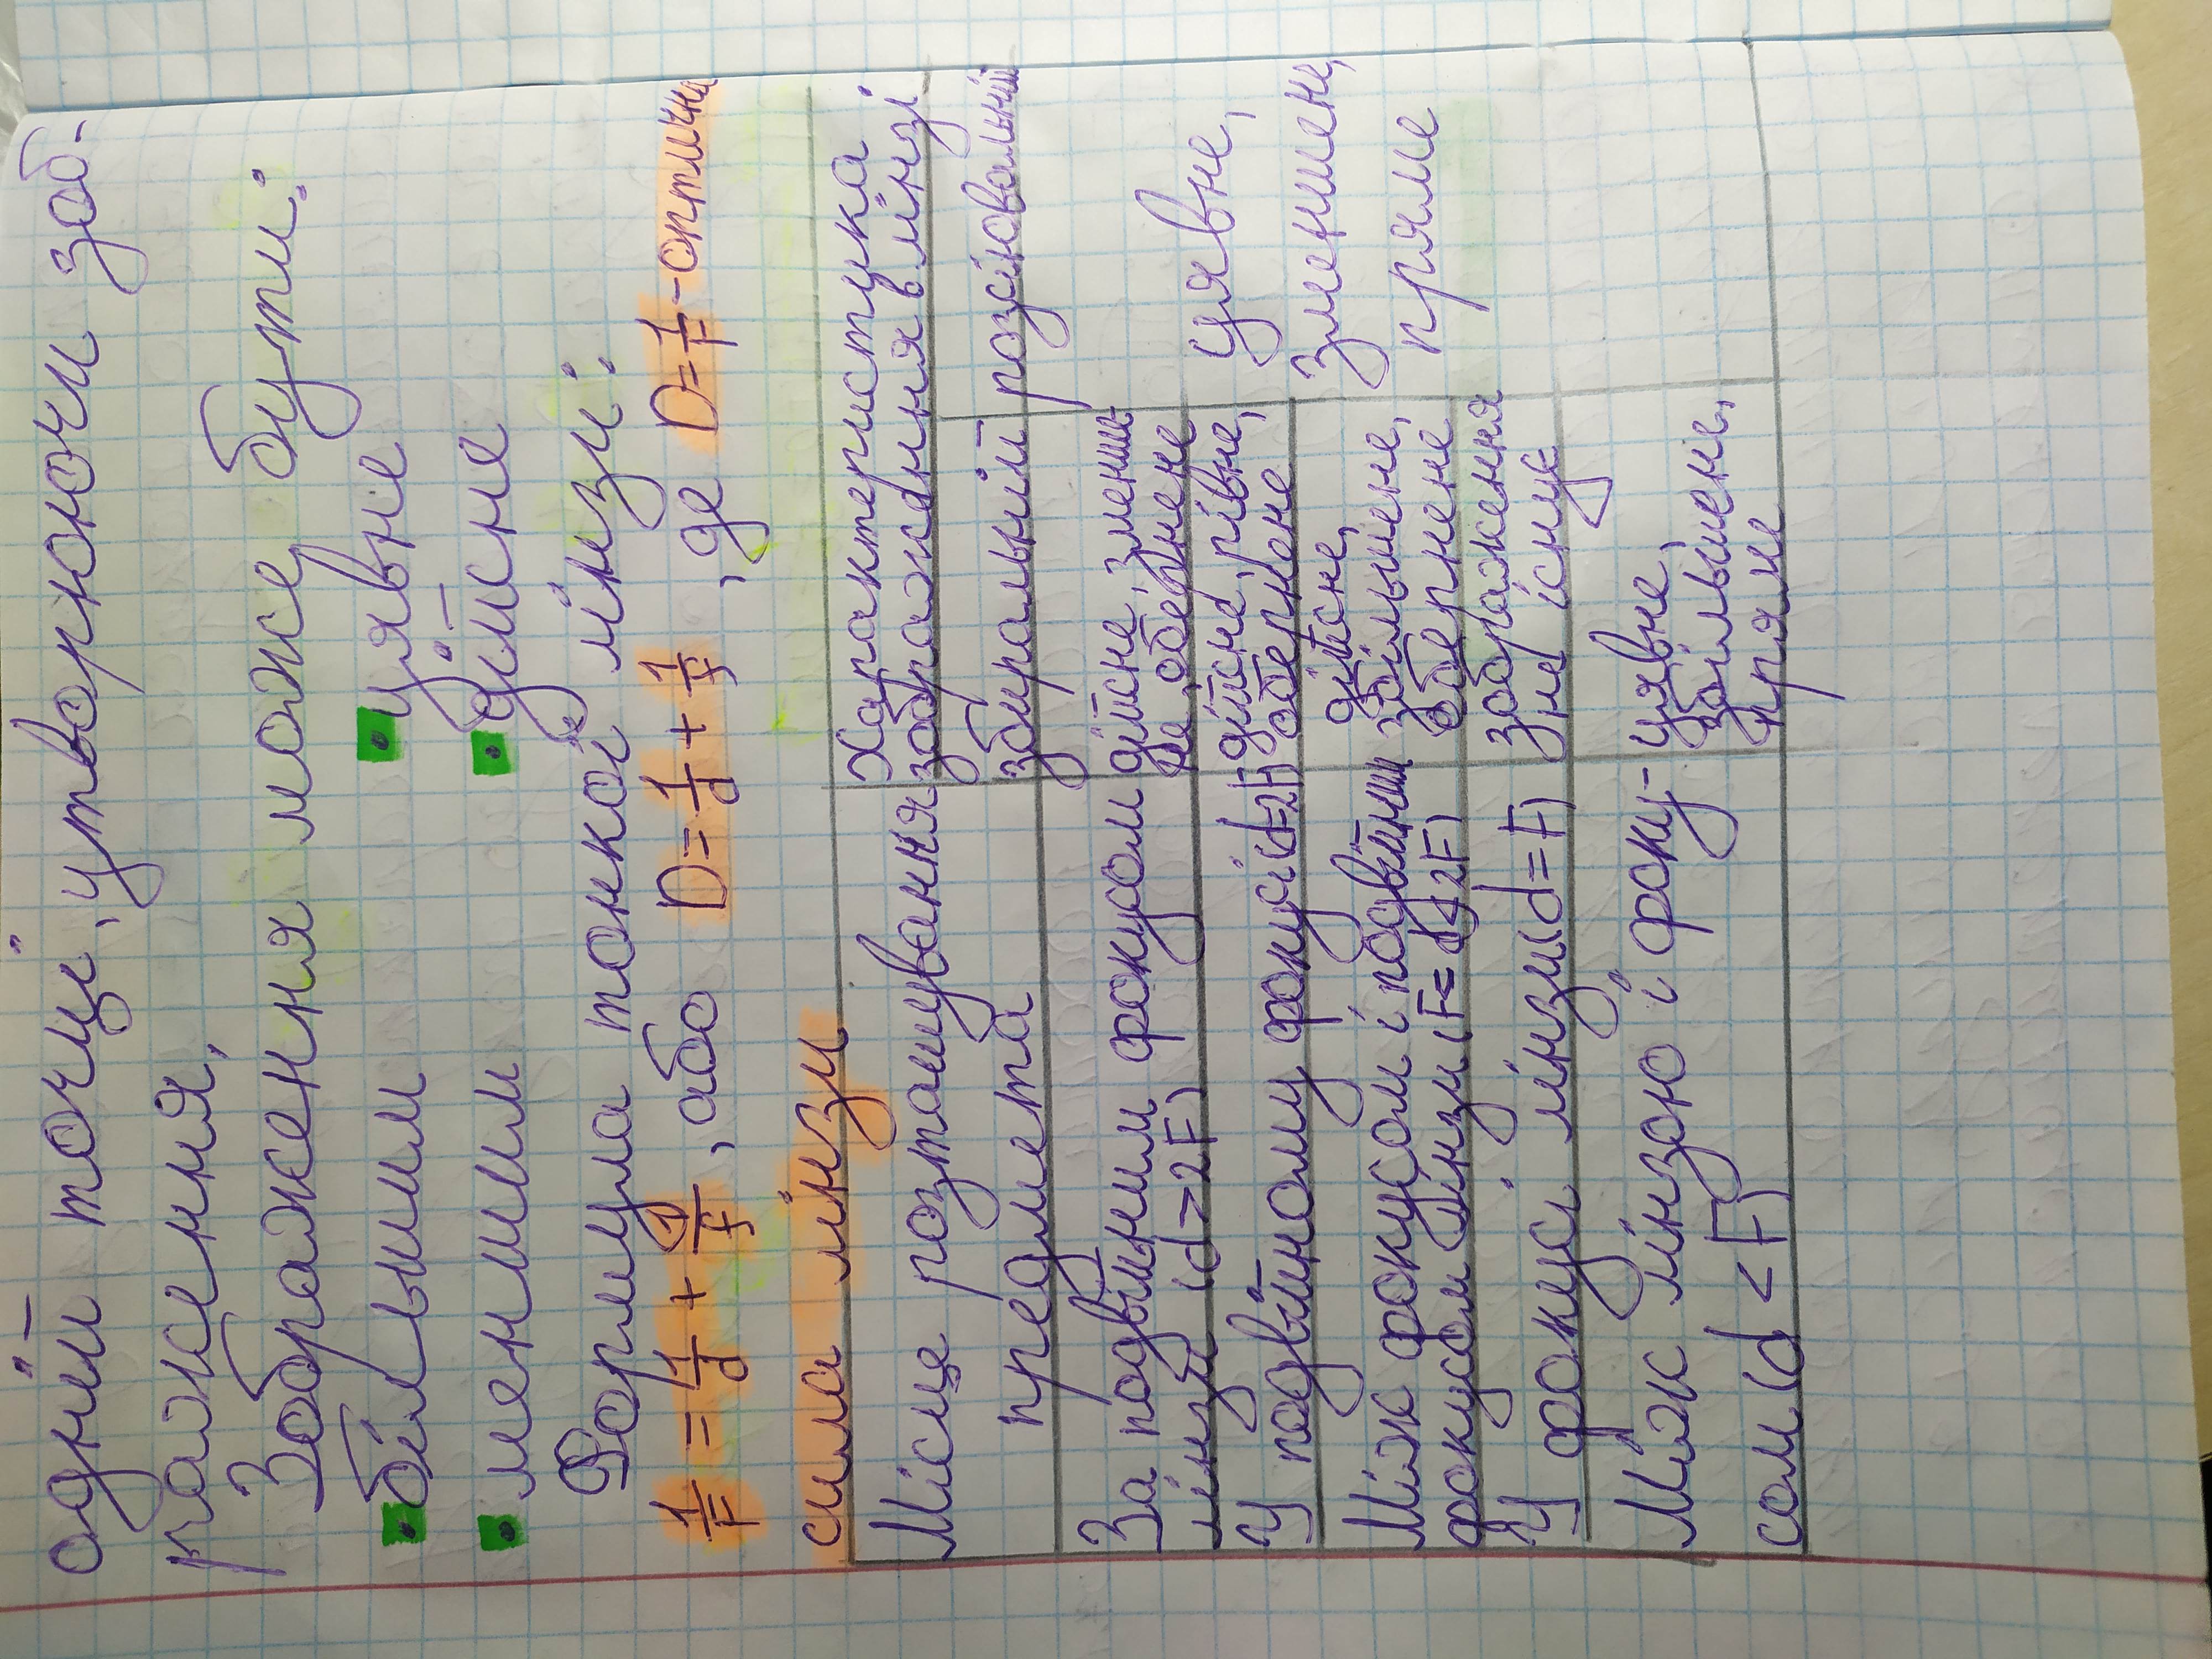 одній точці, утворюючи зоб-
раження,
Зображення може бути:
• більшим • уявне
• меншим • дійсне
Формула тонкої лінзи:
1/F = 1/d + 1/f, або D = 1/d + 1/f, де D = 1/F - оптична
сила лінзи
Місце розташування Характеристика
предмета зображення в лінзі
збиральній розсіювальній
За подвійним фокусом дійсне, зменше-
лінзи (d>2F) не, обернене
У подвійному фокусі (d=2F) дійсне, рівне,
обернене
Між фокусом і подвійним дійсне,
фокусом лінзи (F<d<2F) збільшене,
обернене
У фокусі лінзи (d=F) зображення
не існує
Між лінзою і фоку- уявне,
сом (d<F) збільшене,
пряме
уявне,
зменшене,
пряме